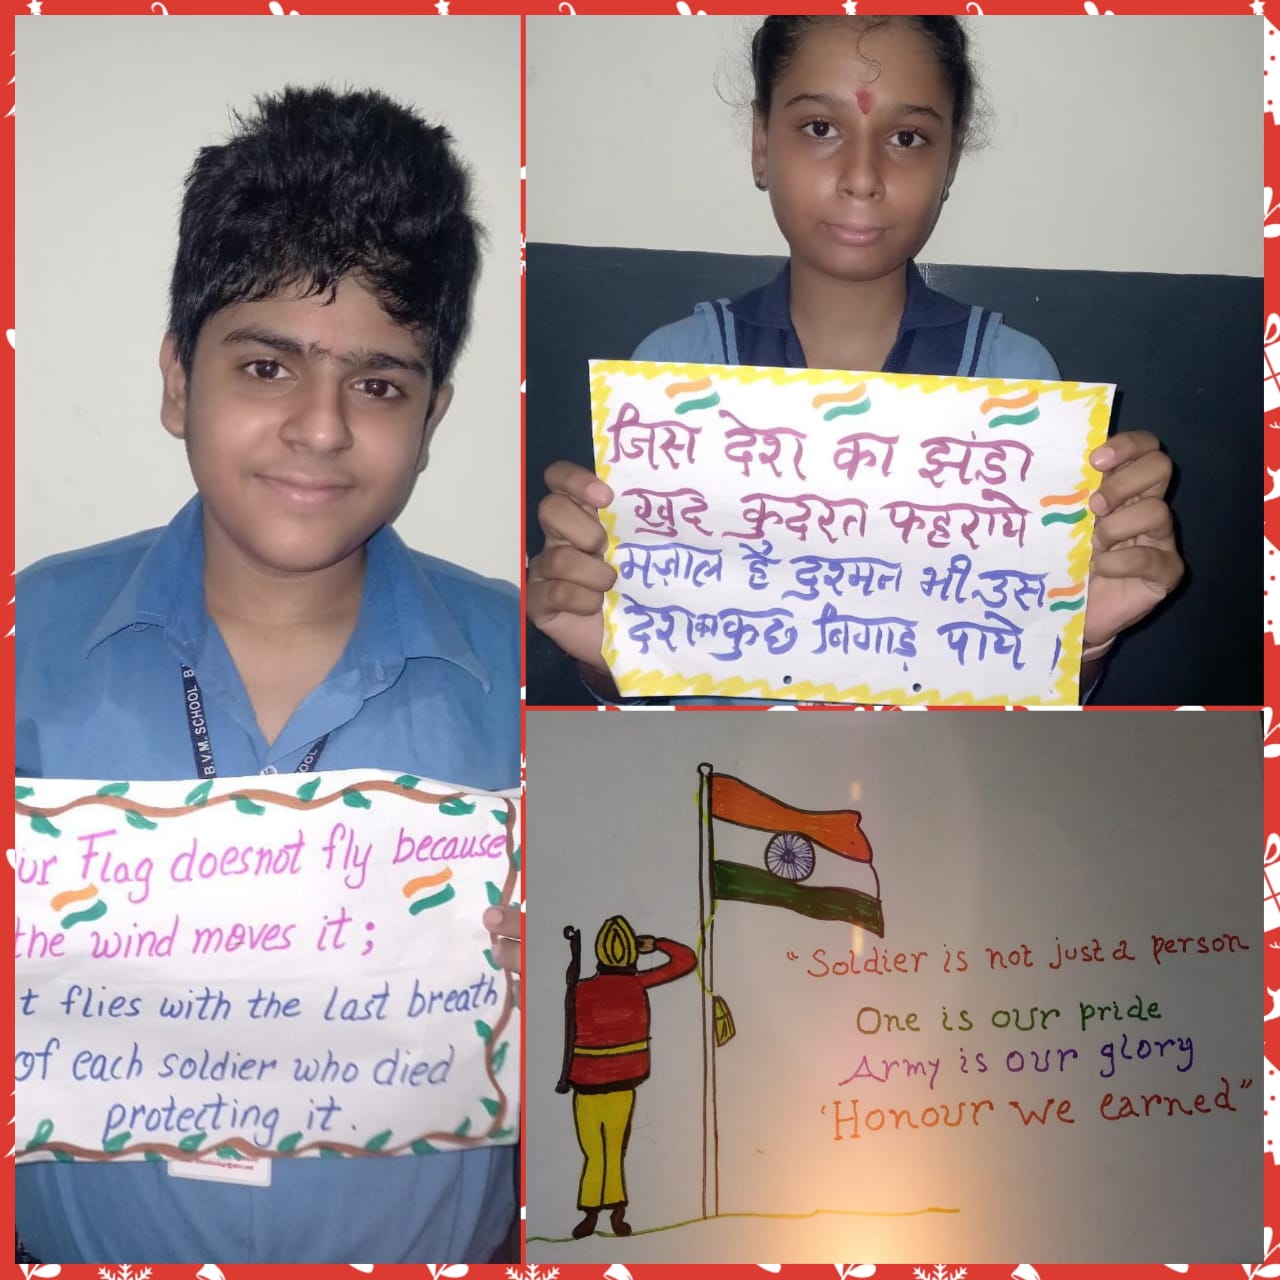 B.V.M. SCHOOL B.
OOL
ur Flag doesnot fly because
the wind moves it;
t flies with the last breath
of each soldier who died
protecting it.
जिस देश का झंडा
खुद कुदरत फहराये
मज़ाल है दुश्मन भी उस
देश का कुछ बिगाड़ पाये।
"Soldier is not just a person
One is our pride
Army is our glory
'Honour we earned"